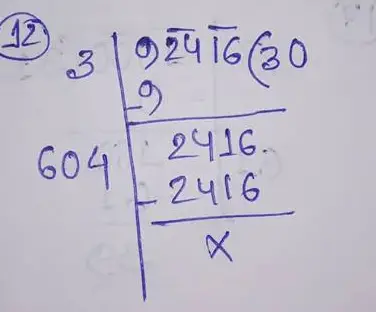 12
3 92416(30
-9
604 2416.
-2416
x